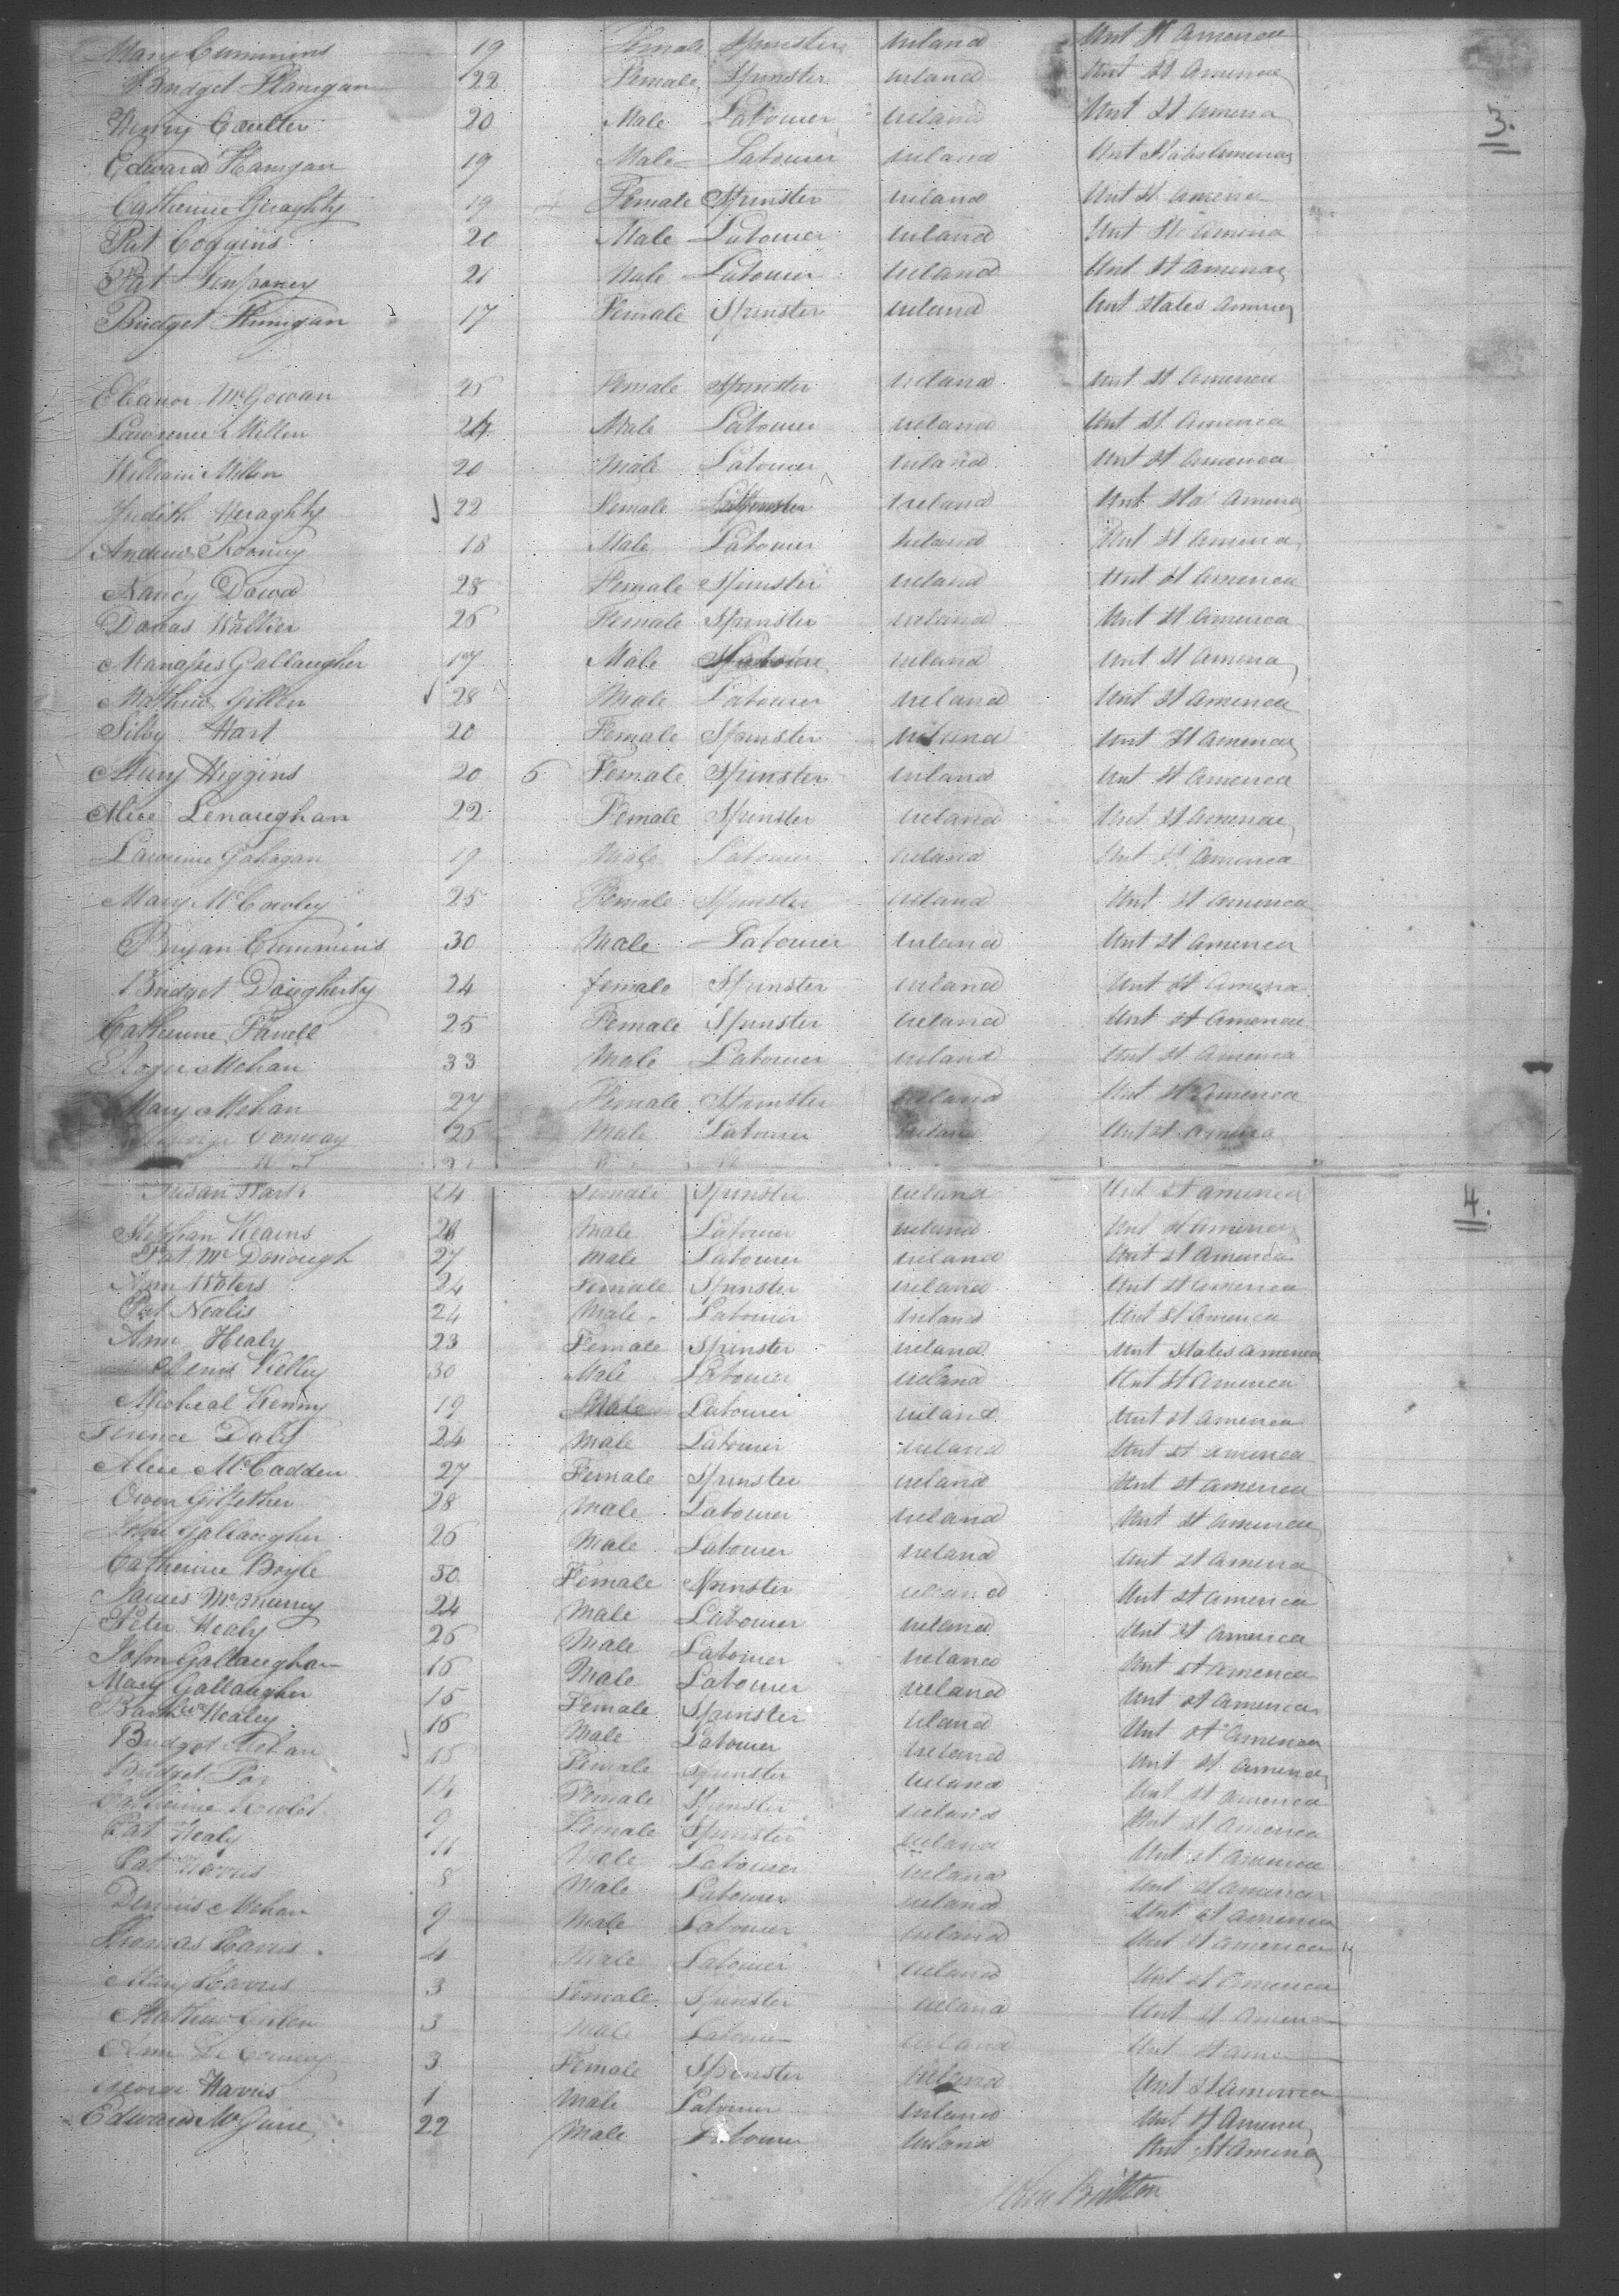 Mary Cummins 19 Female Spinster Ireland Unt St America
Bridget Flanigan 22 Female Spinster Ireland Unt St America
Henry Coulter 20 Male Labourer Ireland Unt St America
3.
Edward Hanigan 19 Male Labourer Ireland Unt States America
Catherine Geraghty 19 Female Spinster Ireland Unt St America
Pat Coggins 20 Male Labourer Ireland Unt St America
Pat 21 Male Labourer Ireland Unt St America
Bridget 17 Female Spinster Ireland Unt States America
Eleanor McGowan 25 Female Spinster Ireland Unt St America
Lawrence Millen 24 Male Labourer Ireland Unt St America
William Millen 20 Male Labourer Ireland Unt St America
Judith Heraghty 22 Female Spinster Ireland Unt Sta America
Andrew Rooney 18 Male Labourer Ireland Unt St America
Nancy Dowd 28 Female Spinster Ireland Unt St America
Walker 26 Female Spinster Ireland Unt St America
Gallaugher 17 Male Labour Ireland Unt St America
Mathew Gillen 28 Male Labourer Ireland Unt St America
Silby Hart 20 Female Spinster Ireland Unt St America
Mary Higgins 20 6 Female Spinster Ireland Unt St America
Alice Lenaughan 22 Female Spinster Ireland Unt St America
Lawrence Gahagan 19 Male Labourer Ireland Unt St America
Mary McCowley 25 Female Spinster Ireland Unt St America
Bryan Cummins 30 Male Labourer Ireland Unt St America
Bridget Daugherty 24 female Spinster Ireland Unt St America
Catherine Farrell 25 Female Spinster Ireland Unt St America
Roger Mehan 33 Male Labourer Ireland Unt St America
Mary Mehan 27 Female Spinster Ireland Unt St America
George Conway 25 Male Labourer Ireland Unt St America
Susan Hart 24 Female Spinster Ireland Unt St America
4.
Stephan Kearns 28 Male Labourer Ireland Unt St America
Pat McDonough 27 Male Labourer Ireland Unt St America
Ann Waters 24 Female Spinster Ireland Unt St America
Pat Nealis 24 Male Labourer Ireland Unt St America
Ann Healy 23 Female Spinster Ireland Unt States America
Denis Kelly 30 Male Labourer Ireland Unt St America
Micheal Kenny 19 Male Labourer Ireland Unt St America
Terence Daly 24 Male Labourer Ireland Unt St America
Alice McCadden 27 Female Spinster Ireland Unt St America
Owen Gilfether 28 Male Labourer Ireland Unt St America
John Gallaugher 26 Male Labourer Ireland Unt St America
Catherine Boyle 30 Female Spinster Ireland Unt St America
James McMurry 24 Male Labourer Ireland Unt St America
Peter Healy 26 Male Labourer Ireland Unt St America
John Gallaugher 16 Male Labourer Ireland Unt St America
Mary Gallaugher 15 Female Spinster Ireland Unt St America
Healey 16 Male Labourer Ireland Unt St America
Bridget Mehan 15 Female Spinster Ireland Unt St America
Bridget 14 Female Spinster Ireland Unt St America
Catherine 9 Female Spinster Ireland Unt St America
Pat Healy 11 Male Labourer Ireland Unt St America
Pat Harris 8 Male Labourer Ireland Unt St America
Dennis Mehan 9 Male Labourer Ireland Unt St America
Thomas Harris 4 Male Labourer Ireland Unt St America
Mary Harris 3 Female Spinster Ireland Unt St America
Mathew Gillen 3 Male Labourer Ireland Unt St
Ann 3 Female Spinster Ireland Unt St America
George Harris 1 Male Labourer Ireland Unt St America
Edward McGuire 22 Male Labourer Ireland Unt St America
John Britton